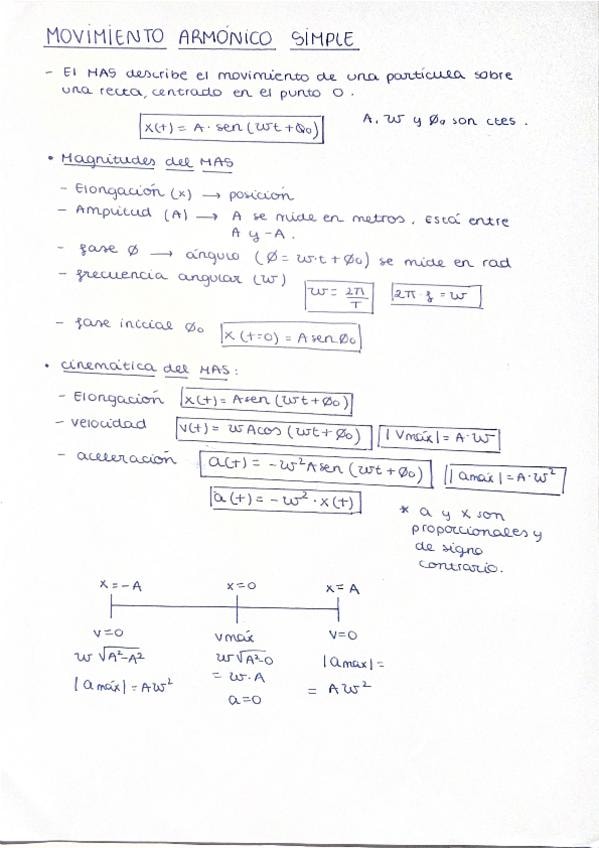 MOVIMIENTO ARMÓNICO SIMPLE
- El MAS describe el movimiento de una partícula sobre
una recta, centrado en el punto O.
x(t) = A · sen (wt + ϕ₀)    A, w y ϕ₀ son ctes.
• Magnitudes del MAS
- Elongación (x) → posición
- Amplitud (A) → A se mide en metros. Está entre
A y -A.
- fase ϕ → ángulo (ϕ = w·t + ϕ₀) se mide en rad
- frecuencia angular (w)    w = 2π/T    2π · f = w
- fase inicial ϕ₀    x (t=0) = A sen ϕ₀
• Cinemática del MAS:
- Elongación    x(t) = A sen (wt + ϕ₀)
- velocidad    v(t) = w A cos (wt + ϕ₀)    |Vmáx| = A·w
- aceleración    a(t) = -w² A sen (wt + ϕ₀)    |amáx| = A·w²
a(t) = -w² · x(t)    * a y x son
proporcionales y
de signo
contrario.
x = -A    x = 0    x = A
v=0    vmáx    v=0
w √A²-A²    w √A²-0    |amáx| =
|amáx| = Aw²    = w·A    = Aw²
a=0